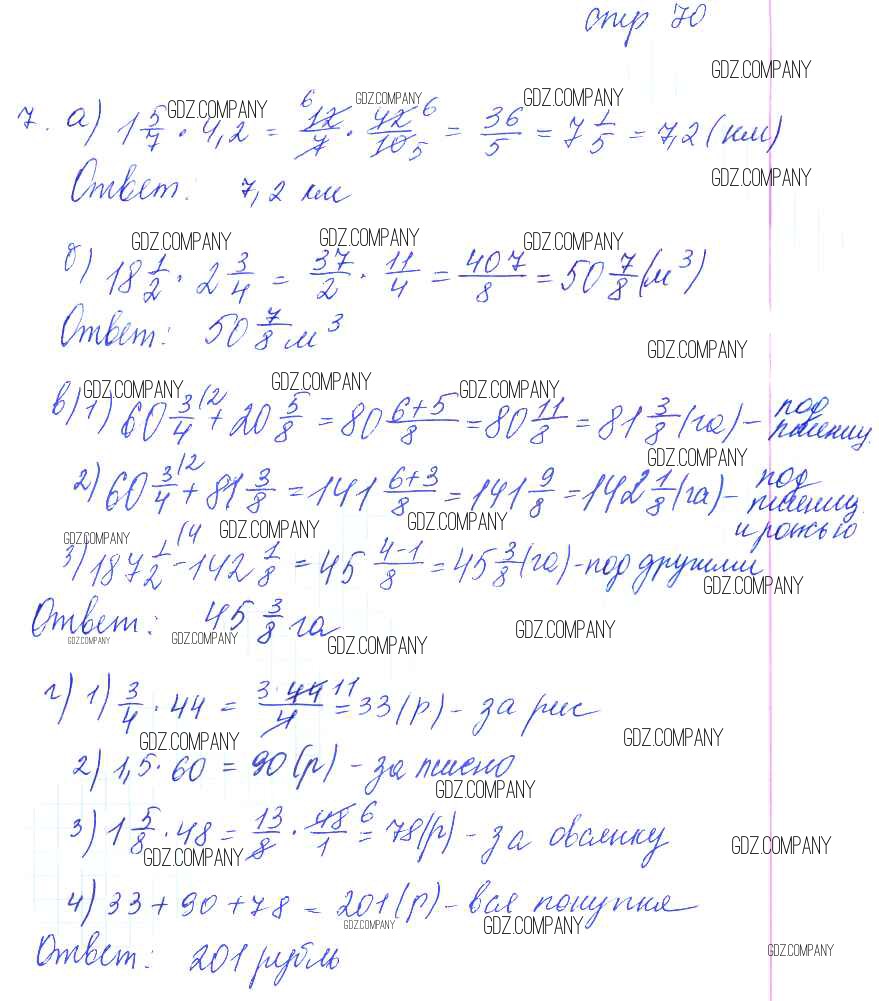 стр 70
7. а) 1 5/7 · 4,2 = 12/7 · 42/10 = 36/5 = 7 1/5 = 7,2 (км)
Ответ: 7,2 км
б) 18 1/2 · 2 3/4 = 37/2 · 11/4 = 407/8 = 50 7/8 (м³)
Ответ: 50 7/8 м³
в) 1) 60 3/4 (2 + 20 5/8 = 80 6+5/8 = 80 11/8 = 81 3/8 (га) – под пшениц.
2) 60 3/4 (2 + 81 3/8 = 141 6+3/8 = 141 9/8 = 142 1/8 (га) – под пшениц. и рожью
3) 187 1/2 (4 - 142 1/8 = 45 4-1/8 = 45 3/8 (га) – под другими
Ответ: 45 3/8 га
г) 1) 3/4 · 44 = 3·44 11/4 = 33 (р) – за рис
2) 1,5 · 60 = 90 (р) – за пшено
3) 1 5/8 · 48 = 13/8 · 48 6/1 = 78 (р) – за овсянку
4) 33 + 90 + 78 = 201 (р) – вся покупка
Ответ: 201 рубль
GDZ.COMPANY